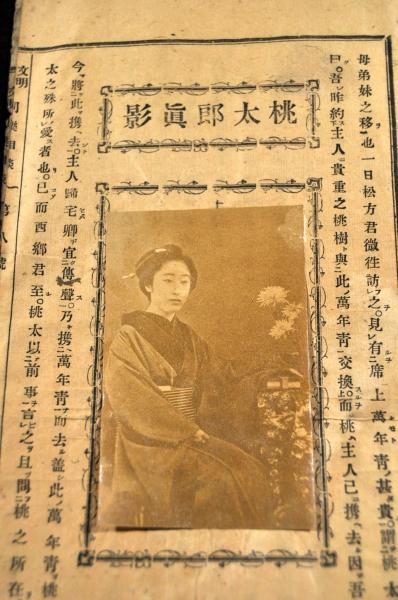 母弟妹之移也一日松方君微往訪之。見有席上萬年靑甚貴。謂桃太
曰。吾昨約主人貴重之桃樹與此萬年靑交換。而桃主人已携去。因吾
桃太郎眞影
今將此携去。主人歸宅卿宜傳聲。乃携萬年靑而去。蓋此萬年靑桃
太之殊所愛者也。已而西鄕君至。桃太以前事言之。且問桃之所在
文明 第八號